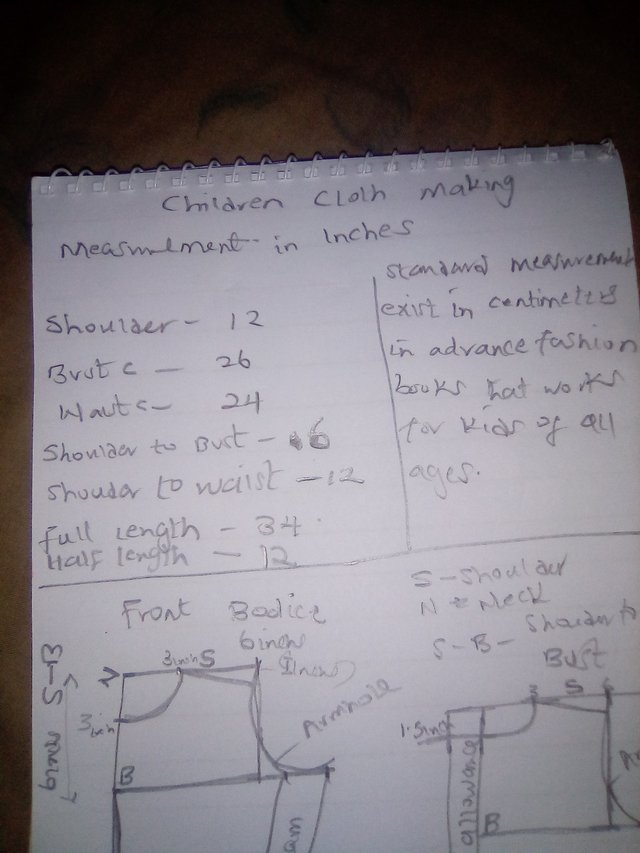 Children Cloth making
Measurement in Inches
Shoulder - 12
Bust c - 26
Waist c - 24
Shoulder to Bust - 6
Shouder to waist - 12
full length - 34
Half length - 12
standard measurement
exist in centimeters
in advance fashion
books that works
for kids of all
ages.
Front Bodice
S - Shoulder
N = Neck
S - B - Shoulder to
Bust
6inch
3inch S
1inch
N
3inch
Armhole
B
S-B
6inch
3 S
1.5inch
B